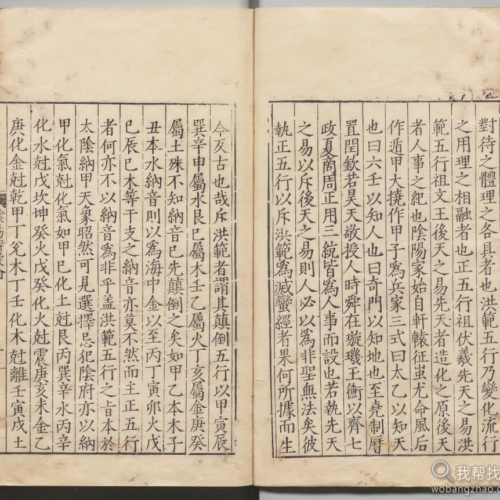 對待之體理之各具者也洪範五行乃變化流行
之用理之相融者也正五行祖伏羲先天之易洪
範五行祖文王後天之易先天者造化之原後天
者人事之紀也陰陽家始自軒轅征蚩尤命風后
作遁甲大撓作甲子為兵家三式曰太乙以知天
也曰六壬以知人也曰奇門以知地也至堯制曆
置閏欽若昊天敬授人時舜在璇璣玉衡以齊七
政夏商周正用三統皆為人事而設也去後天
之易以斥後天之易則人必以為非聖無法矣彼
執正五行以斥洪範為滅蠻經者果何所據而生
今反古也哉斥洪範者謂其顛倒五行以甲寅辰
巽辛申屬水艮巳屬木壬乙屬火丁亥屬金庚癸
屬土殊不知納音已先顛倒之矣如甲乙本木子
丑本水納音則以為海中金以至丙丁寅卯火戊
巳辰巳木等干支之納音亦莫不然而主正五行
者何亦不以納音為非乎蓋洪範五行之音本於
太陰納甲天象昭然可見選擇忌犯陰府亦以納
甲化氣尅化氣如甲巳化土尅艮丙巽辛水丙辛
化水尅戊坎坤癸火戊癸化火尅震庚亥未金乙
庚化金尅乾甲丁兊木丁壬化木尅離壬寅戌土
wobangzhao.com